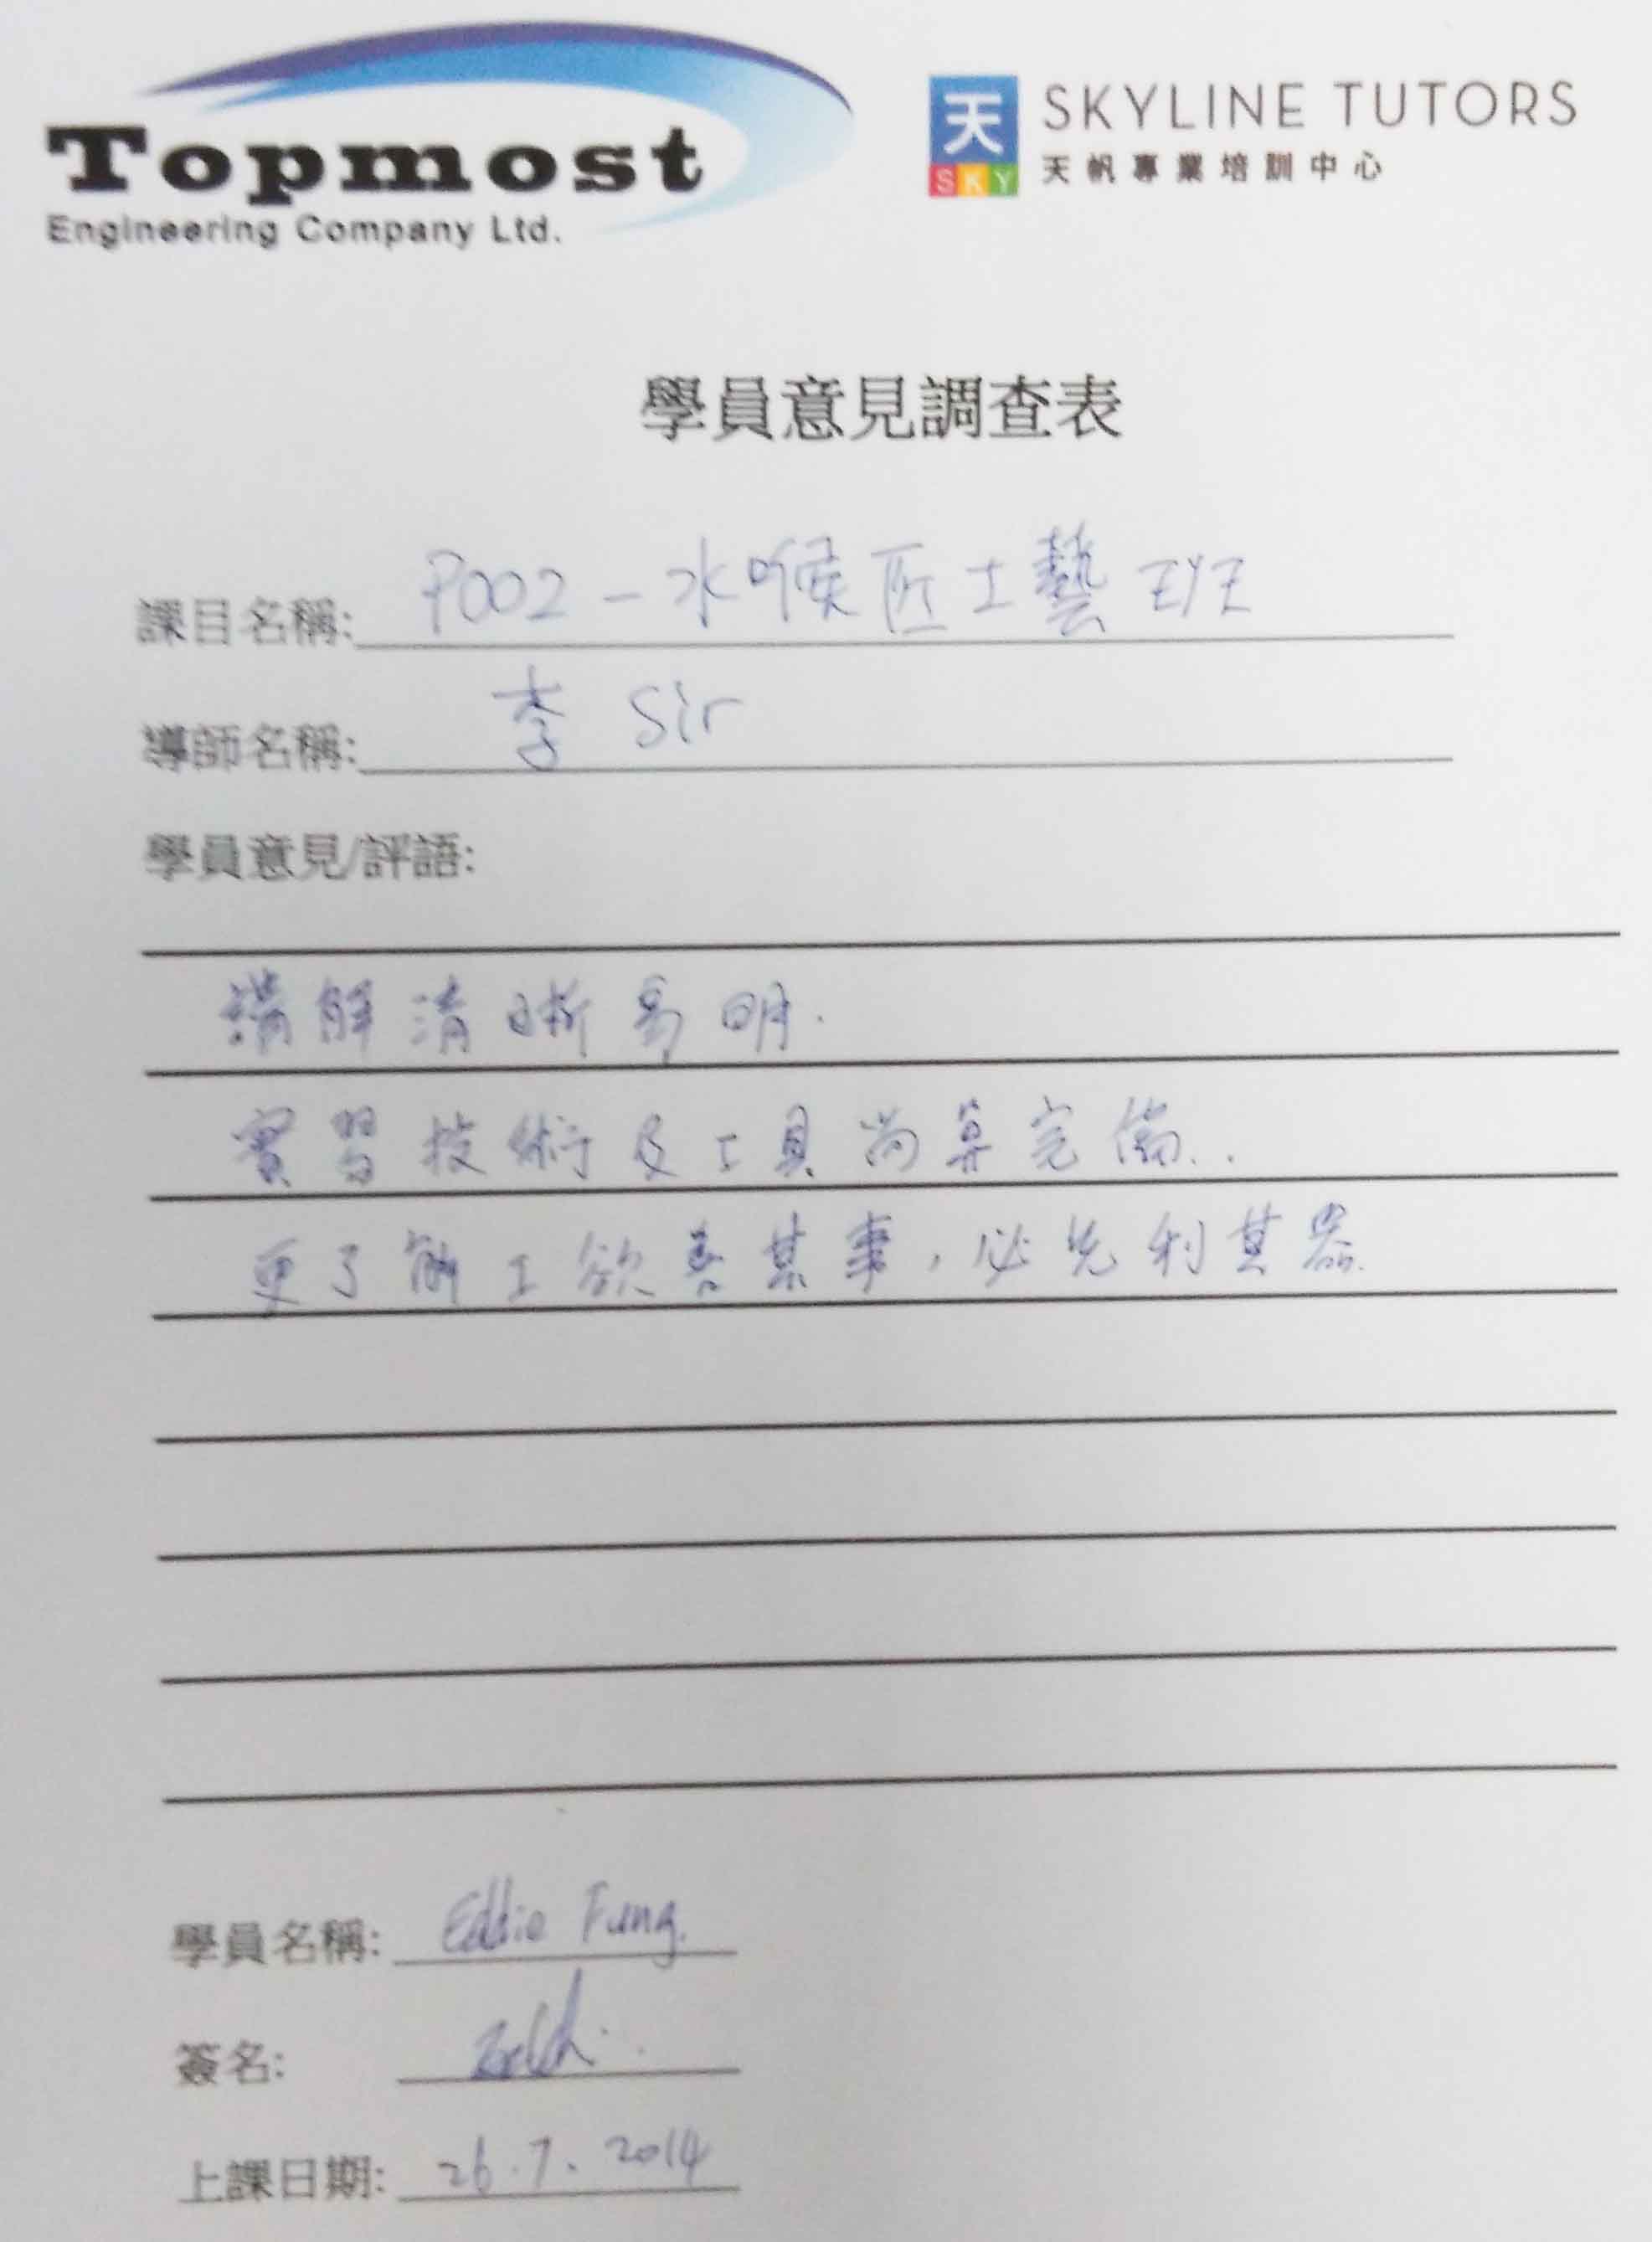 Topmost
Engineering Company Ltd.
天 SKY SKYLINE TUTORS
天帆專業培訓中心
學員意見調查表
課目名稱: P002 - 水喉匠士藝班
導師名稱: 李 Sir
學員意見/評語:
講解清晰易明.
實習技術及工具尚算完備..
更了解工欲善其事,必先利其器.
學員名稱: Eddie Fung.
簽名:
上課日期: 26.7.2014